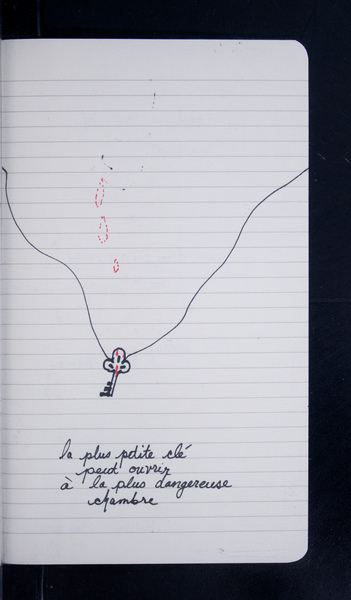 la plus petite clé
peut ouvrir
à la plus dangereuse
chambre